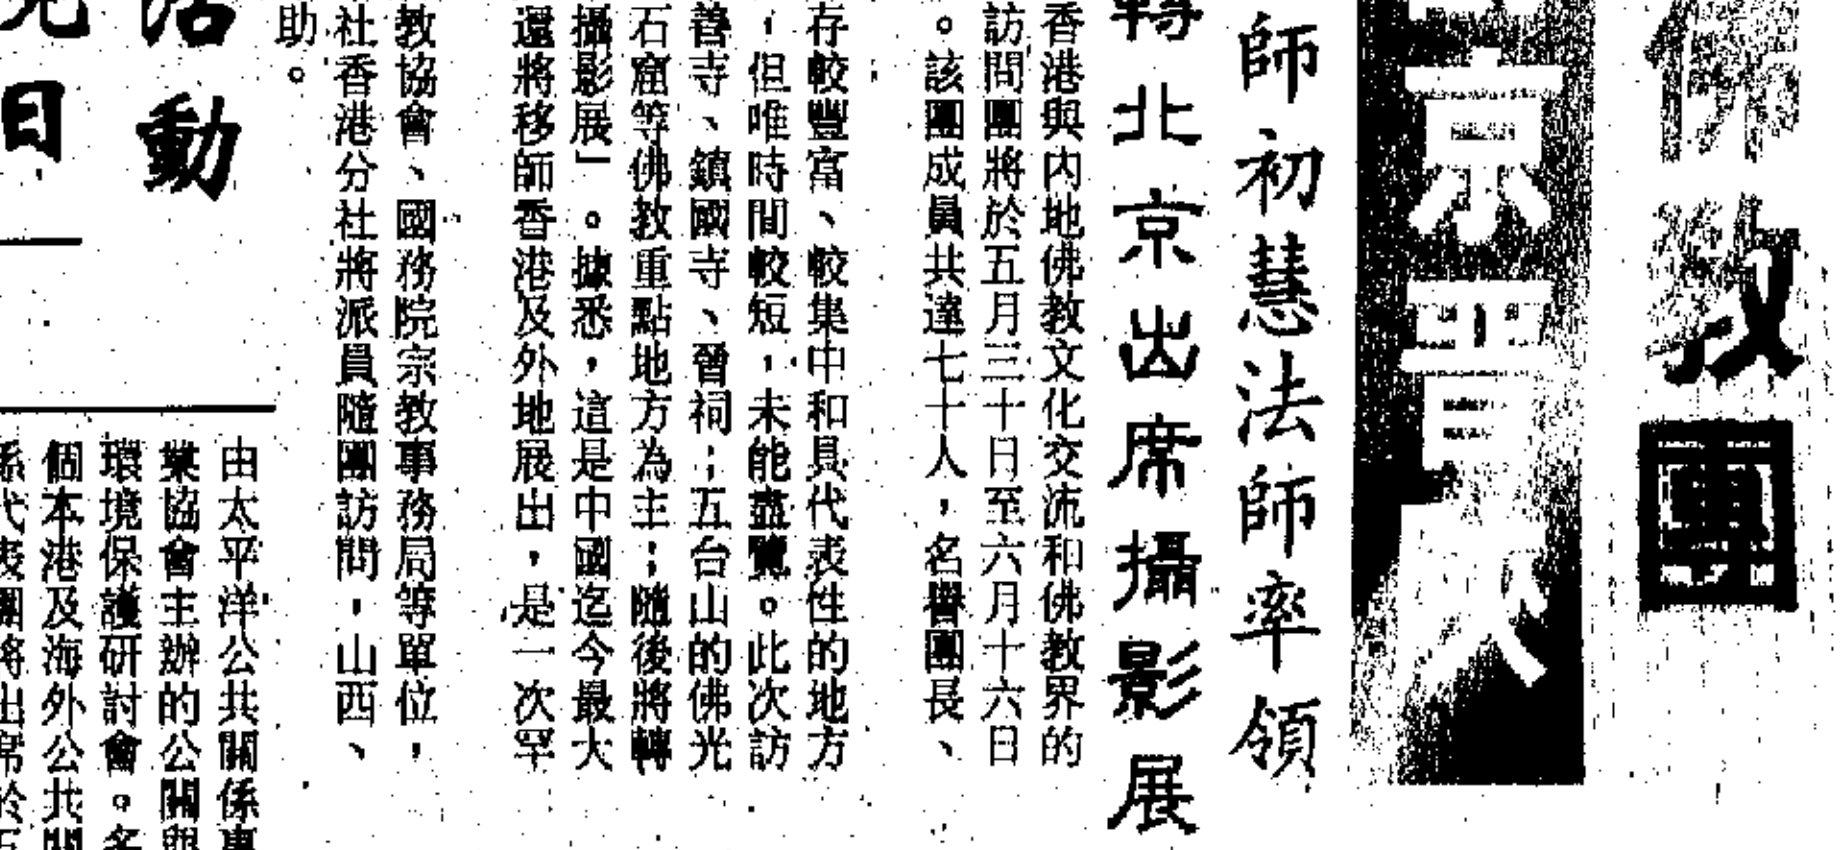 佛教團
京晋
師初慧法師率領
轉北京出席攝影展
香港與內地佛教文化交流和佛教界的
訪問團將於五月三十日至六月十六日
。該團成員共達七十人，名譽團長、
存較豐富、較集中和具代表性的地方
，但唯時間較短，未能盡覽。此次訪
善寺、鎮國寺、晉祠；五台山的佛光
石窟等佛教重點地方為主；隨後將轉
攝影展」。據悉，這是中國迄今最大
還將移師香港及外地展出，是一次罕
教協會、國務院宗教事務局等單位，
社香港分社將派員隨團訪問，山西、
助。
活動
日
由太平洋公共關係專
業協會主辦的公關與
環境保護研討會。名
個本港及海外公共關
係代表團將出席於五